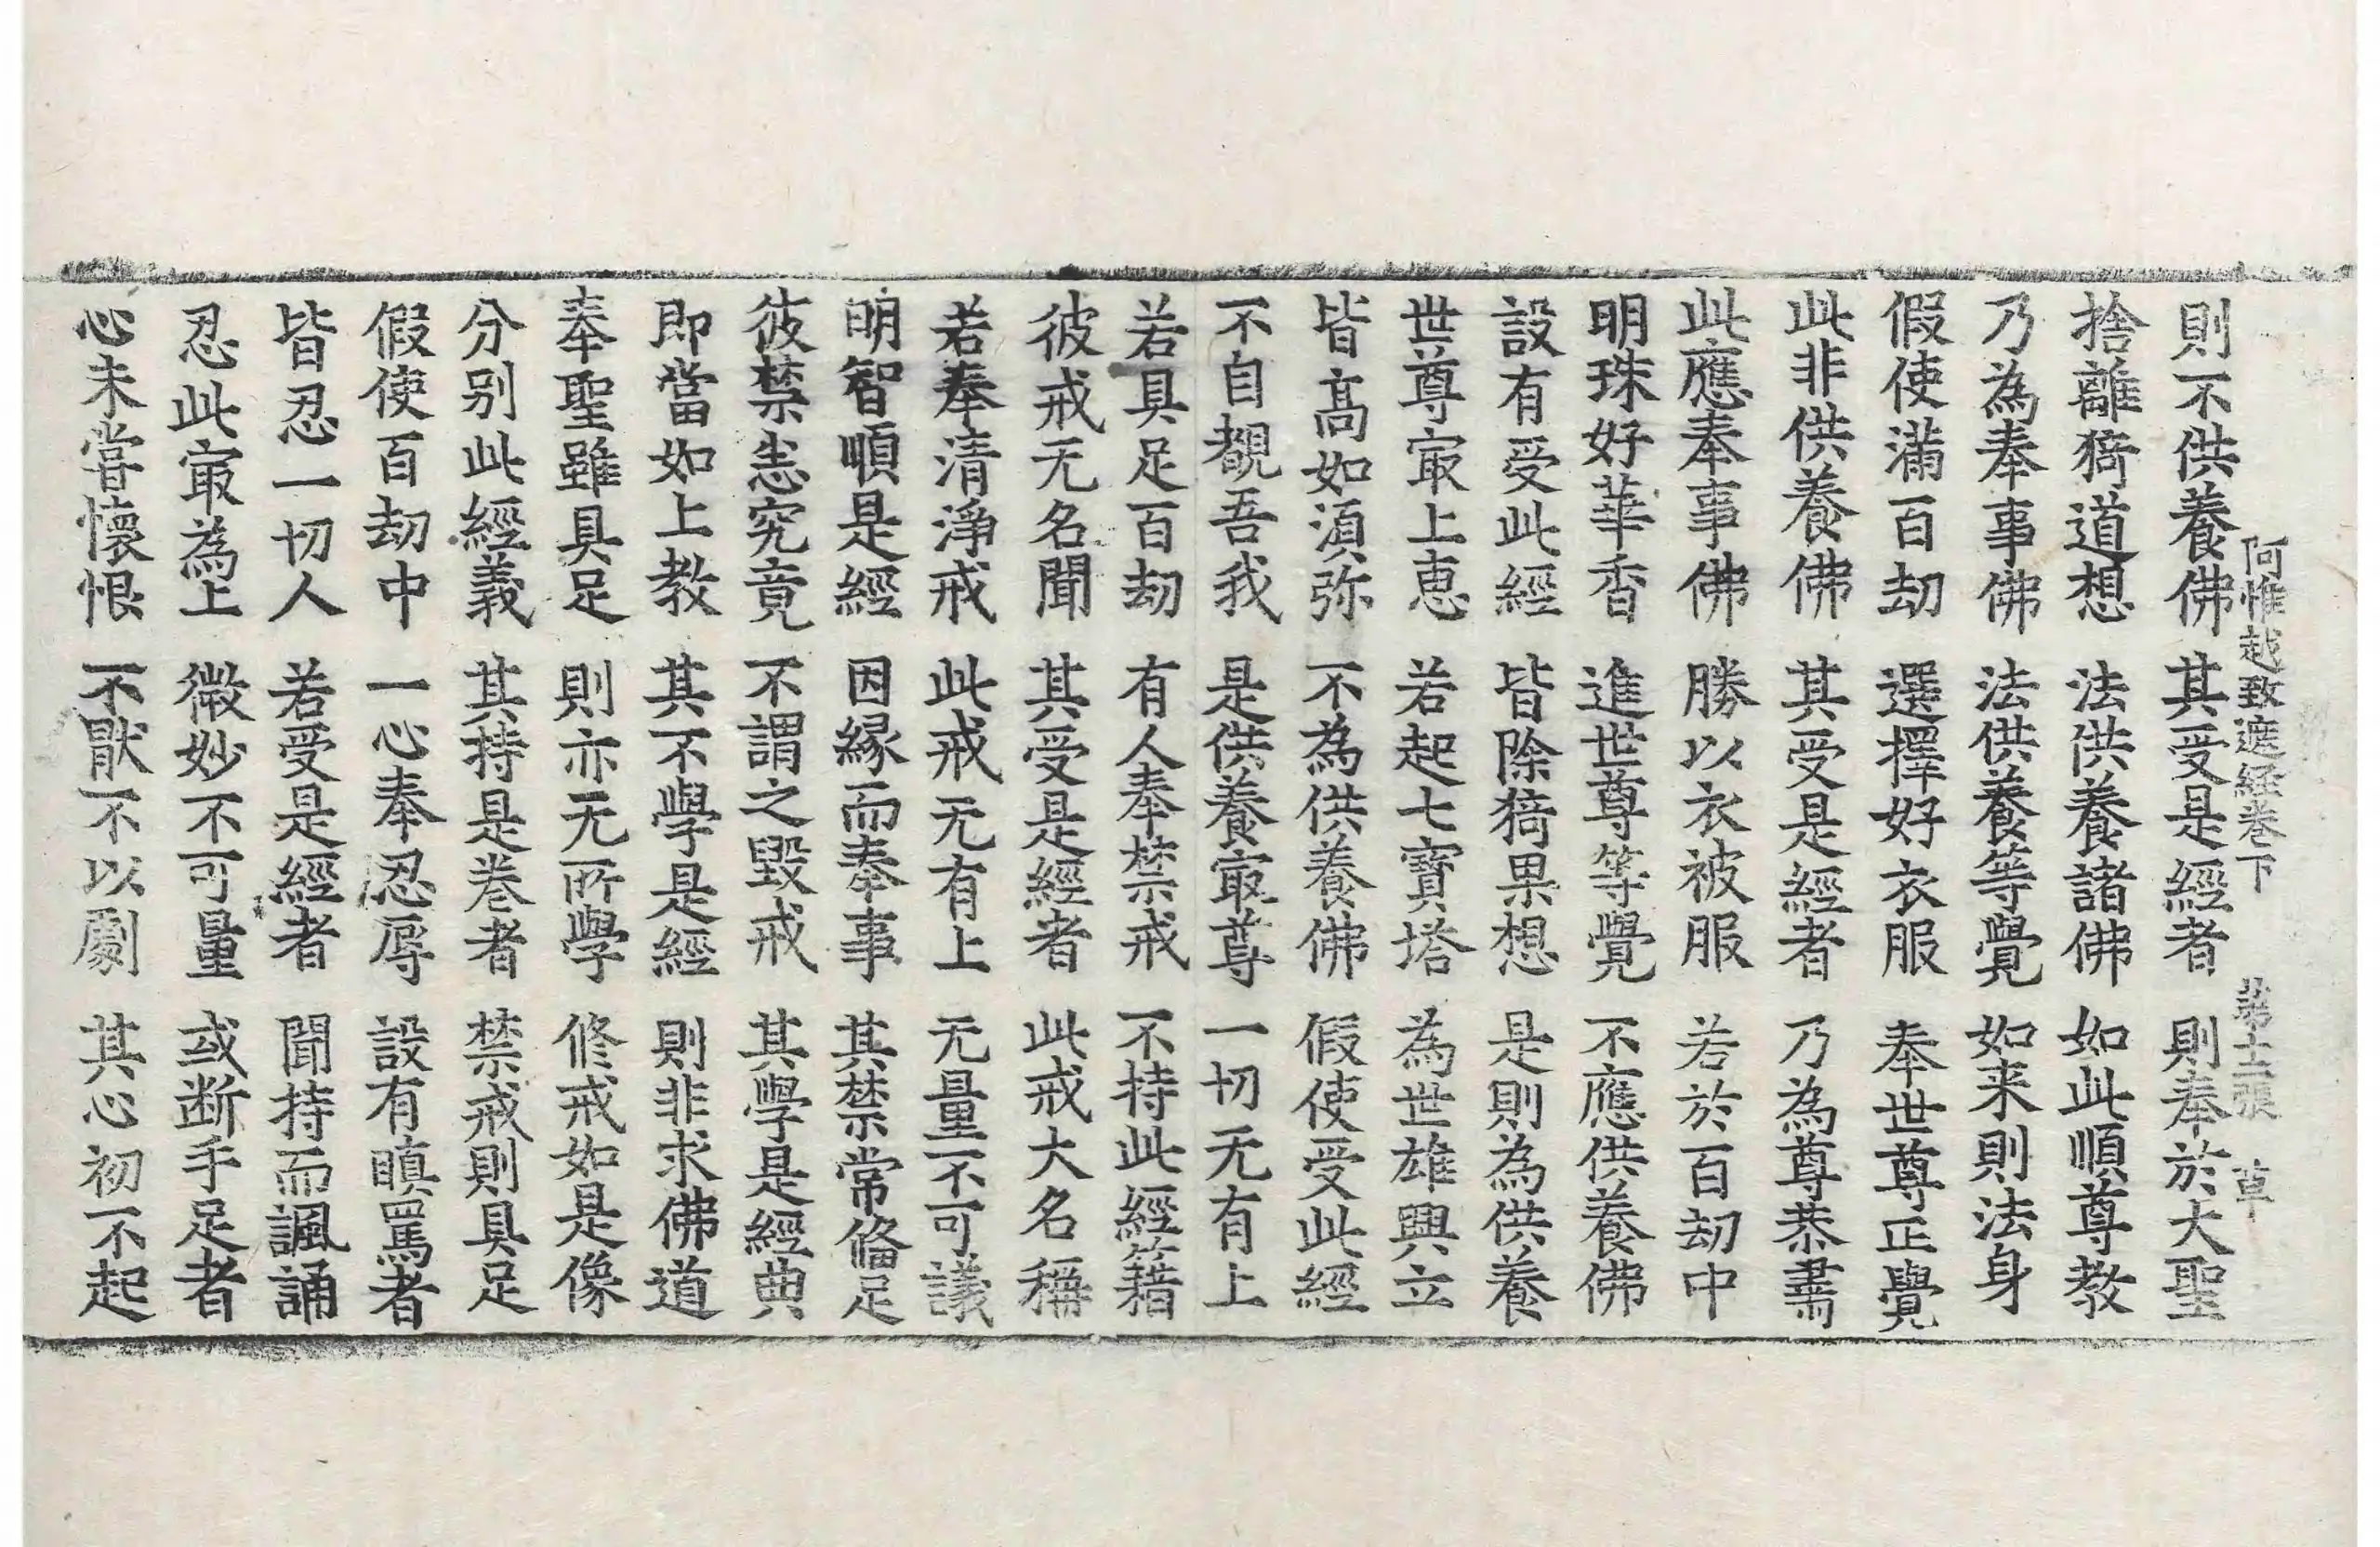 則不供養佛 其受是經者 則奉於大聖
阿惟越致遮経卷下 第十二張 草
捨離猗道想 法供養諸佛 如此順尊教
乃為奉事佛 法供養等覺 如来則法身
假使滿百劫 選擇好衣服 奉世尊正覺
此非供養佛 其受是經者 乃為尊恭肅
此應奉事佛 勝以衣被服 若於百劫中
明珠好華香 進世尊等覺 不應供養佛
設有受此經 皆除猗果想 是則為供養
世尊冣上恵 若起七寶塔 為世雄興立
皆髙如湏弥 不為供養佛 假使受此經
不自覩吾我 是供養冣尊 一切无有上
若具足百劫 有人奉禁戒 不持此經籍
彼戒无名聞 其受是經者 此戒大名稱
若奉清淨戒 此戒无有上 无量不可議
明智順是經 因緣而奉事 其禁常俻足
彼禁恚究竟 不謂之毀戒 其學是經典
即當如上教 其不學是經 則非求佛道
奉聖雖具足 則亦无所學 修戒如是像
分别此經義 其持是卷者 禁戒則具足
假使百劫中 一心奉忍辱 設有瞋罵者
皆忍一切人 若受是經者 聞持而諷誦
忍此冣為上 微妙不可量 或断手足者
心未甞懷恨 不猒不以劇 其心初不起